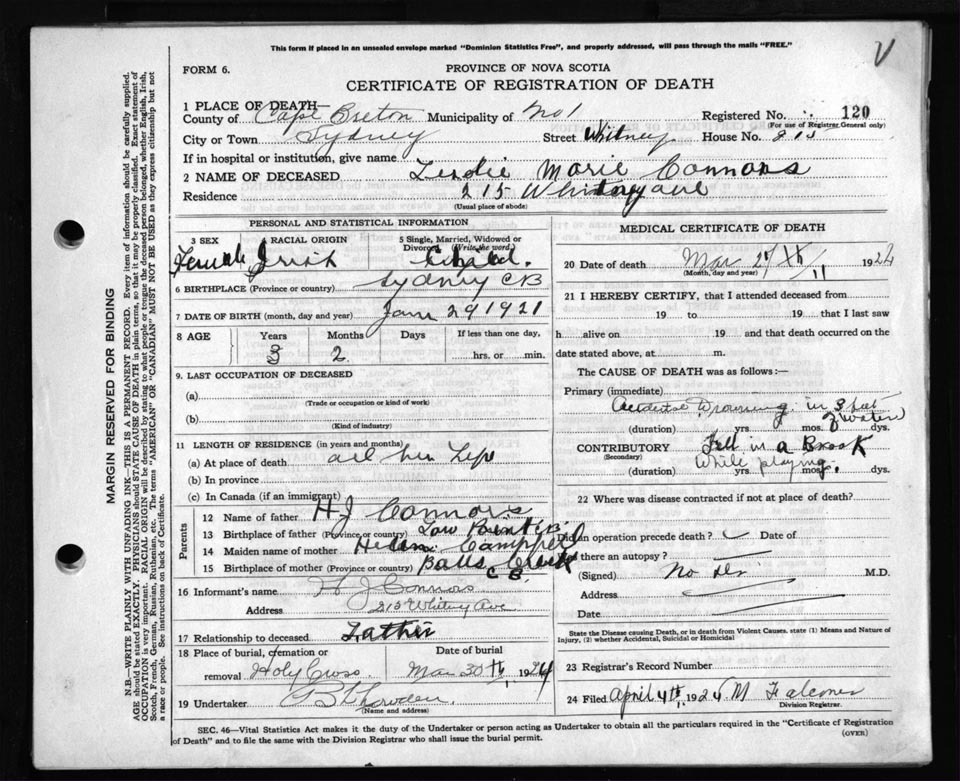 V
This form if placed in an unsealed envelope marked "Dominion Statistics Free", and properly addressed, will pass through the mails "FREE."
FORM 6.
PROVINCE OF NOVA SCOTIA
CERTIFICATE OF REGISTRATION OF DEATH
1 PLACE OF DEATH—
County of Cape Breton Municipality of No 1 Registered No. 120
(For use of Registrar General only)
City or Town Sydney Street Whitney House No. 215
If in hospital or institution, give name
2 NAME OF DECEASED Marie Connors
Residence 215 Whitney ave
(Usual place of abode)
PERSONAL AND STATISTICAL INFORMATION
3 SEX 4 RACIAL ORIGIN 5 Single, Married, Widowed or Divorced (Write the word)
Female Irish Child.
6 BIRTHPLACE (Province or country) Sydney CB
7 DATE OF BIRTH (month, day and year) Jan 29 1921
8 AGE Years Months Days If less than one day,
3 2 hrs. or min.
9. LAST OCCUPATION OF DECEASED
(a)
(Trade or occupation or kind of work)
(b)
(Kind of industry)
11 LENGTH OF RESIDENCE (in years and months)
(a) At place of death all her Life
(b) In province
(c) In Canada (if an immigrant)
Parents
12 Name of father H J Connors
13 Birthplace of father (Province or country) Low Point CB
14 Maiden name of mother Helena Campbell
15 Birthplace of mother (Province or country) Balls Creek
C B
16 Informant's name H J Connors
Address 215 Whitney Ave
17 Relationship to deceased Father
18 Place of burial, cremation or removal Date of burial
Holy Cross Mar 30th, 1924
19 Undertaker
(Name and address)
MEDICAL CERTIFICATE OF DEATH
20 Date of death Mar 1924
(Month, day and year)
21 I HEREBY CERTIFY, that I attended deceased from
19 to 19 that I last saw
h alive on 19 and that death occurred on the
date stated above, at m.
The CAUSE OF DEATH was as follows:—
Primary (immediate)
Accidental Drowning in 3 feet
of water
(duration) yrs. mos. dys.
CONTRIBUTORY Fell in a Brook
(Secondary) While playing.
(duration) yrs. mos. dys.
22 Where was disease contracted if not at place of death?
Did an operation precede death? Date of
Was there an autopsy?
(Signed) No Dr M.D.
Address
Date
State the Disease causing Death, or in death from Violent Causes. state (1) Means and Nature of
Injury, (2) whether Accidental, Suicidal or Homicidal
23 Registrar's Record Number
24 Filed April 4th, 1924 M Falconer
Division Registrar.
SEC. 46—Vital Statistics Act makes it the duty of the Undertaker or person acting as Undertaker to obtain all the particulars required in the "Certificate of Registration
of Death" and to file the same with the Division Registrar who shall issue the burial permit.
(OVER)
MARGIN RESERVED FOR BINDING
N.B.—WRITE PLAINLY WITH UNFADING INK—THIS IS A PERMANENT RECORD. Every item of information should be carefully supplied.
AGE should be stated EXACTLY. PHYSICIANS should STATE CAUSE OF DEATH in plain terms, so that it may be properly classified. Exact statement of
OCCUPATION is very important. RACIAL ORIGIN will be described by stating to what people or tongue the deceased person belonged, whether English, Irish,
Scotch, French, German, Russian, Ruthenian, etc. The terms "AMERICAN" or "CANADIAN" MUST NOT BE USED as they express citizenship but not
a race or people. See instructions on back of Certificate.